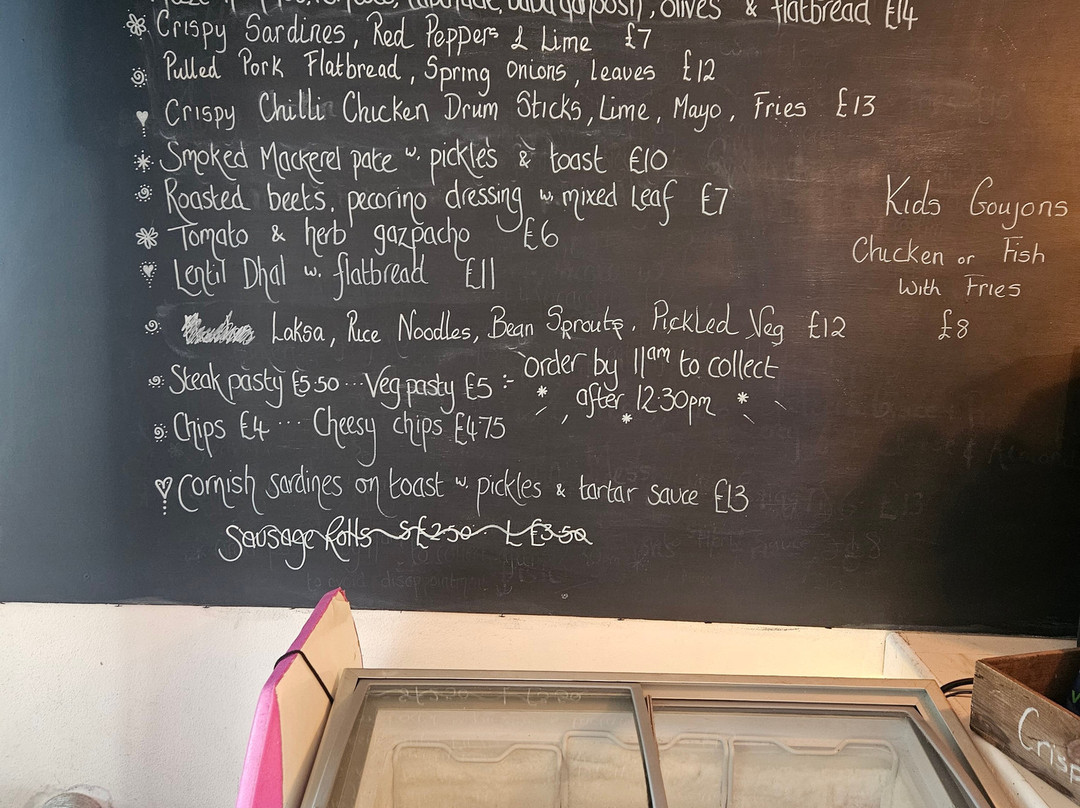 babaganoosh, olives & flatbread £14
Crispy Sardines, Red Peppers & Lime £7
Pulled Pork Flatbread, Spring Onions, Leaves £12
Crispy Chilli Chicken Drum Sticks, Lime, Mayo, Fries £13
Smoked Mackerel pate w. pickles & toast £10
Roasted beets, pecorino dressing w. mixed Leaf £7
Tomato & herb gazpacho £6
Lentil Dhal w. flatbread £11
Laksa, Rice Noodles, Bean Sprouts, Pickled Veg £12
Steak pasty £5.50 ... Veg pasty £5 :- order by 11am to collect
after 12:30pm
Chips £4 ... Cheesy chips £4.75
Cornish sardines on toast w. pickles & tartar sauce £13
Sausage Rolls S £2.50 L £3.50
Kids Goujons
Chicken or Fish
With Fries
£8
Crisp